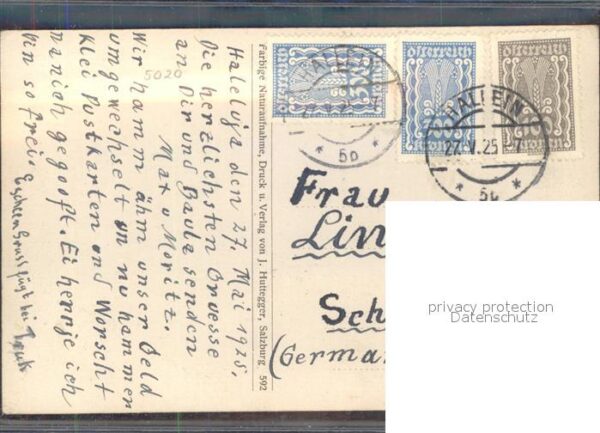 Haleluja den 27. Mai 1925.
Die herzlichsten Orvesse
an Dir und Paula senden
Max u Moritz.
Wir hamm ähm unser Geld
umgewechselt un nu hammer
klei Postkarten und Worscht
danich gegooft. Ei herrje ich
bin so frei. e
fügt bei
5020
Farbige Naturaufnahme, Druck u. Verlag von J. Huttegger, Salzburg 592
österreich
österreich
österreich
HALLEIN
5b
HALLEIN
27.V.25-7
5b
Frau
Lin
Sch
(Germa
privacy protection
Datenschutz